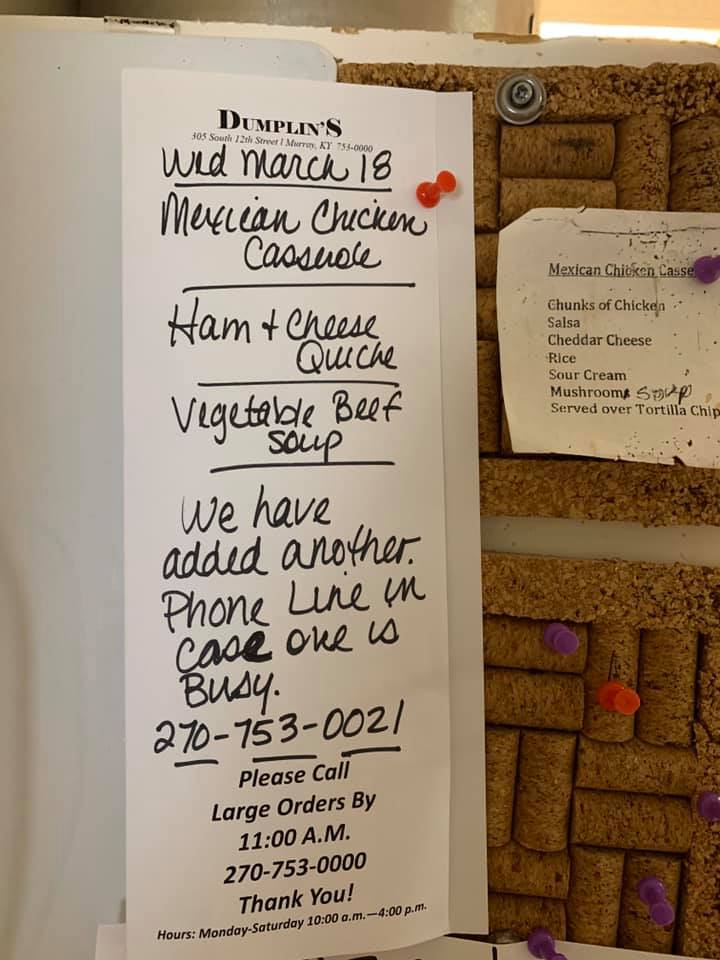 DUMPLIN'S
305 South 12th Street | Murray, KY 753-0000
Wed March 18
Mexican Chicken
Casserole
Ham + Cheese
Quiche
Vegetable Beef
Soup
We have
added another.
Phone Line in
case one is
Busy.
270-753-0021
Please Call
Large Orders By
11:00 A.M.
270-753-0000
Thank You!
Hours: Monday-Saturday 10:00 a.m.—4:00 p.m.
Mexican Chicken Casse
Chunks of Chicken
Salsa
Cheddar Cheese
Rice
Sour Cream
Mushroom soup
Served over Tortilla Chip